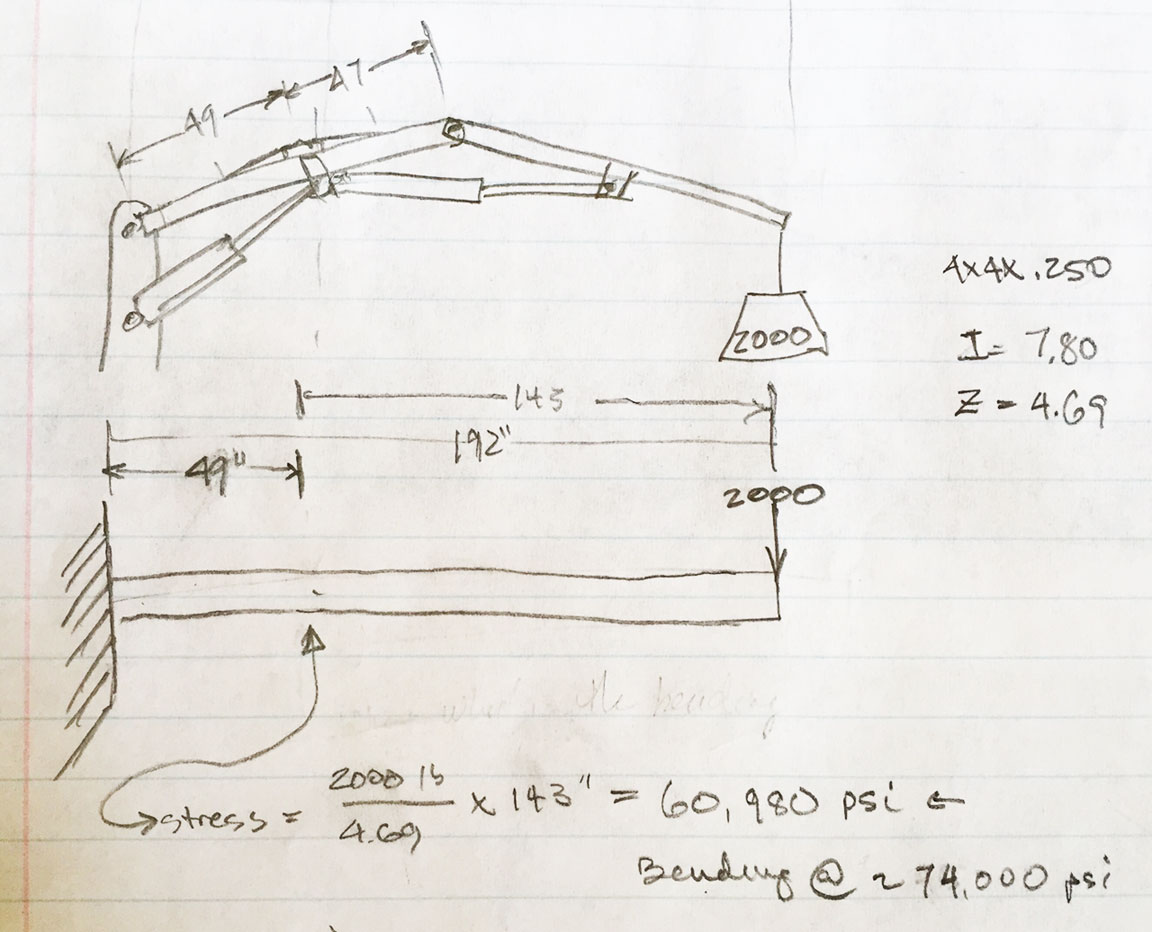 49
47
2000
4x4x.250
I= 7.80
Z = 4.69
143
192"
49"
2000
the bending
stress = 2000 lb / 4.69 x 143" = 60,980 psi ←
Bending @ ~ 74,000 psi